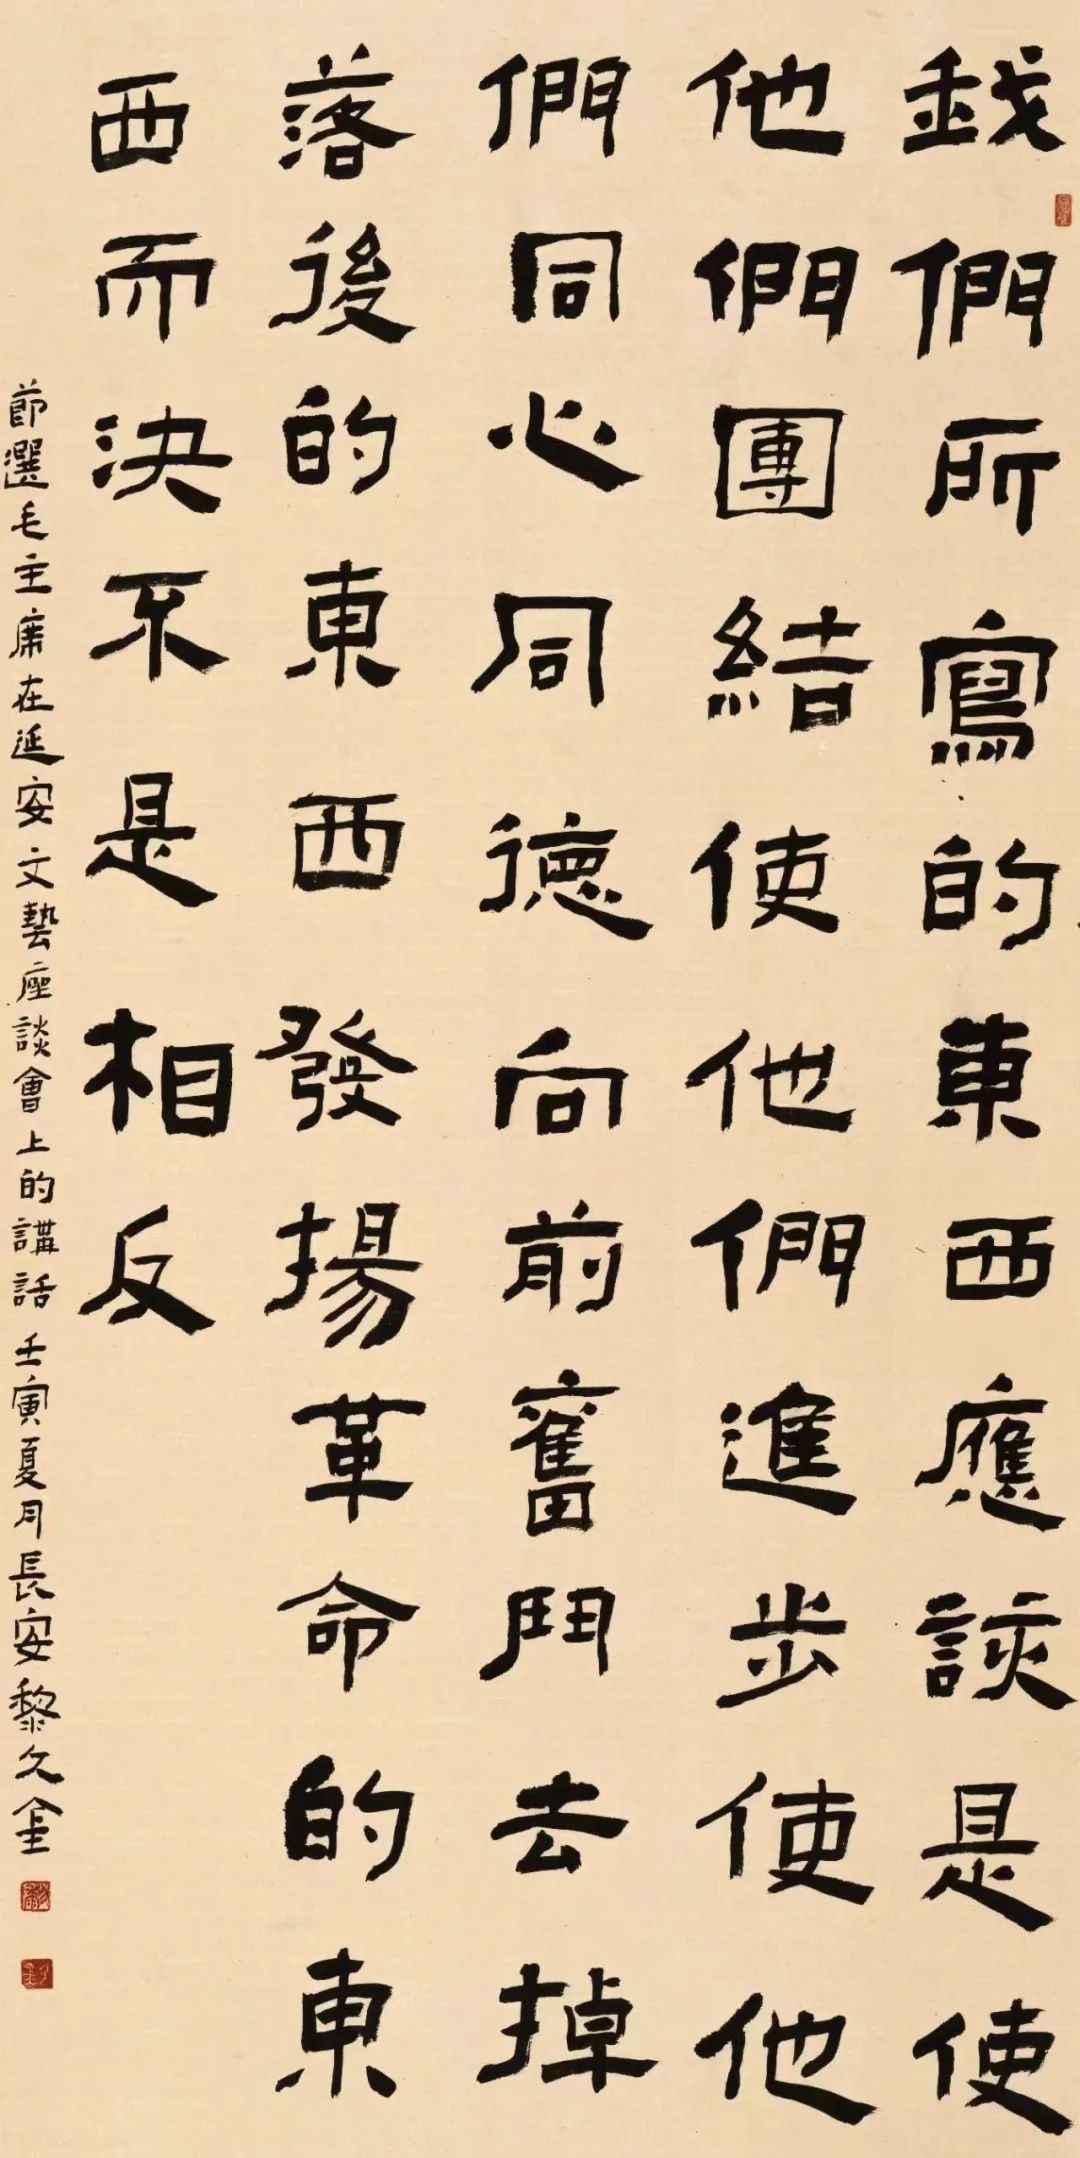 我們所寫的東西應該是使
他們團結使他們進步使他
們同心同德向前奮鬥去掉
落後的東西發揚革命的東
西而決不是相反
節選毛主席在延安文藝座談會上的講話壬寅夏月長安黎久